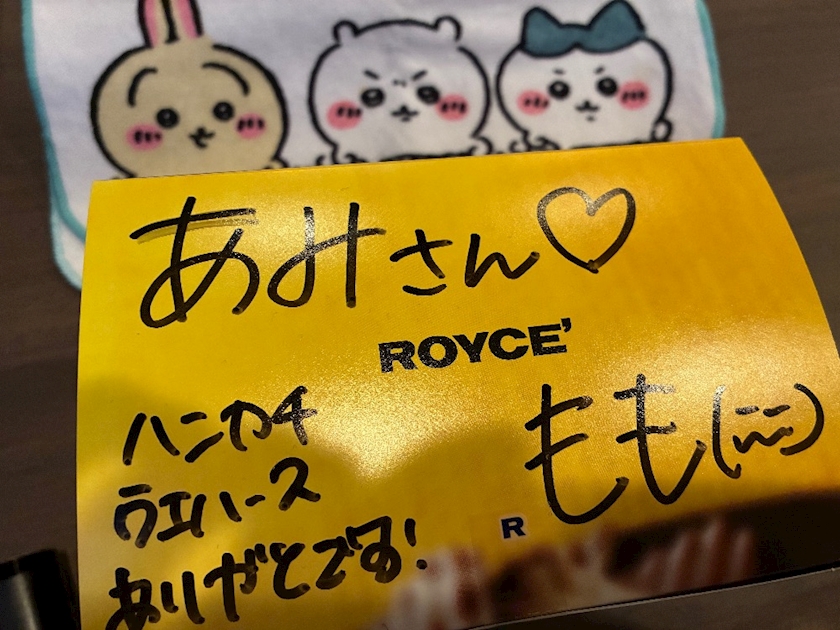 あみさん♡
ROYCE'
ハンカチ
ウエハース
ありがとです!
もも(ニニ)
R